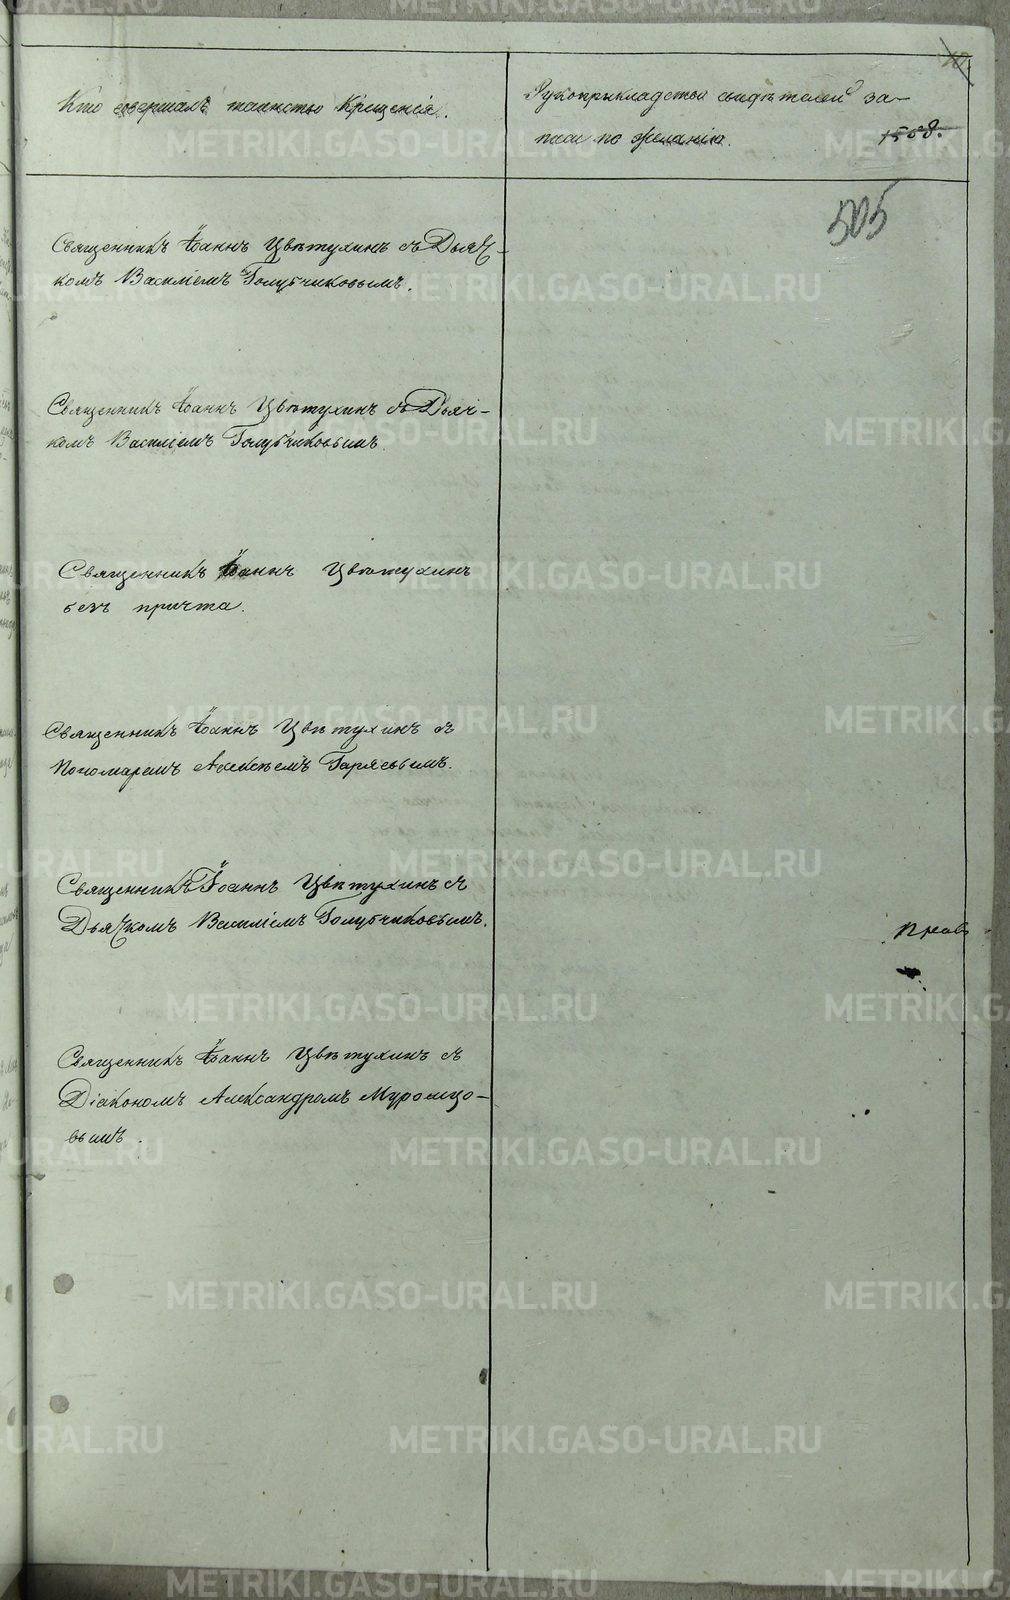 Кто совершалъ таинство Крещенія.
Рукоприкладство свидѣтелей за-
писи по желанію.
1508.
505
Священникъ Іоаннъ Цвѣтухинъ съ Дьяч-
комъ Василіемъ Голубчиковымъ.
Священникъ Іоаннъ Цвѣтухинъ съ Дьяч-
комъ Василіемъ Голубчиковымъ.
Священникъ Іоаннъ Цвѣтухинъ
безъ причта.
Священникъ Іоаннъ Цвѣтухинъ съ
Пономаремъ Алексѣемъ Гаряевымъ.
Священникъ Іоаннъ Цвѣтухинъ съ
Дьячкомъ Василіемъ Голубчиковымъ.
Священникъ Іоаннъ Цвѣтухинъ съ
Діакономъ Александромъ Муромцо-
вымъ.
METRIKI.GASO-URAL.RU